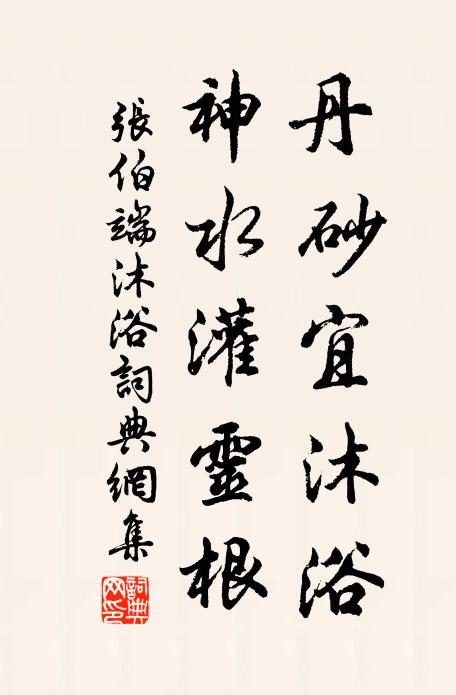 丹砂宜沐浴
神水灌靈根
張伯端沐浴詞典網集
詞典网印